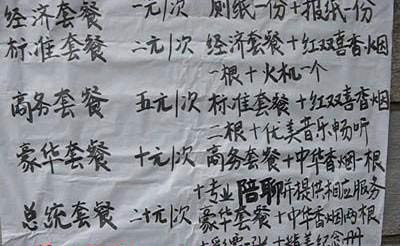 经济套餐 一元/次 厕纸一份+报纸一份
标准套餐 二元/次 经济套餐+红双喜香烟
一根+火机一个
商务套餐 五元/次 标准套餐+红双喜香烟
二根+优美音乐畅听
豪华套餐 十元/次 商务套餐+中华香烟一根
+专业陪聊并提供相应服务
总统套餐 二十元/次 豪华套餐+中华香烟两根
+彩票一张+精美纪念册